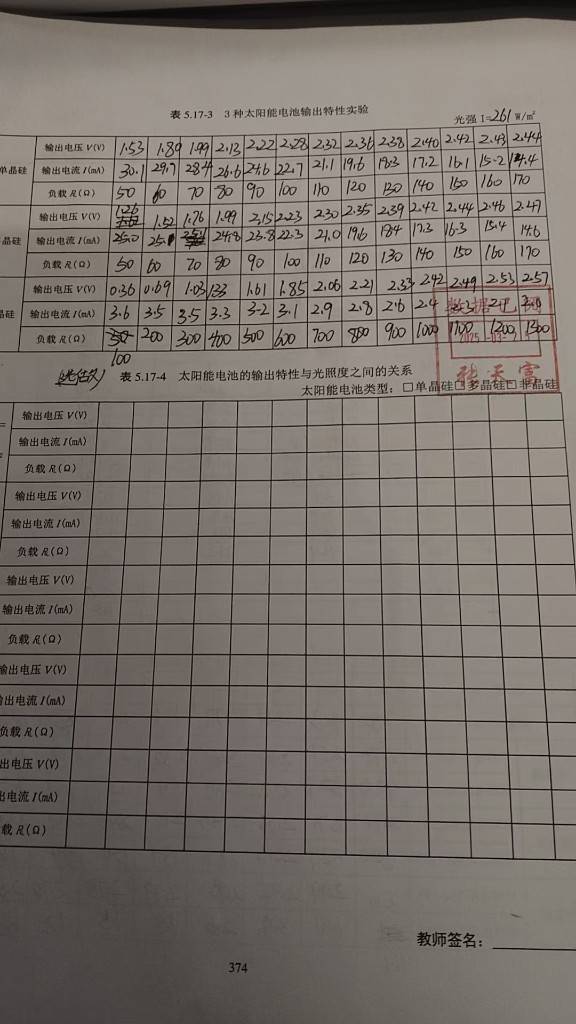 表 5.17-3 3 种太阳能电池输出特性实验
光强 I=261 W/m²
单晶硅 输出电压 V(V) 1.53 1.80 1.99 2.13 2.22 2.28 2.32 2.36 2.38 2.40 2.42 2.43 2.44
输出电流 I(mA) 30.1 29.7 28.4 26.6 24.6 22.7 21.1 19.6 18.3 17.2 16.1 15.2 14.4
负载 R(Ω) 50 60 70 80 90 100 110 120 130 140 150 160 170
晶硅 输出电压 V(V) 1.26 1.52 1.76 1.99 2.15 2.23 2.30 2.35 2.39 2.42 2.44 2.46 2.47
输出电流 I(mA) 25.0 25.1 24.8 23.8 22.3 21.0 19.6 18.4 17.3 16.3 15.4 14.6
负载 R(Ω) 50 60 70 80 90 100 110 120 130 140 150 160 170
晶硅 输出电压 V(V) 0.36 0.69 1.03 1.33 1.61 1.85 2.06 2.21 2.33 2.42 2.49 2.53 2.57
输出电流 I(mA) 3.6 3.5 3.5 3.3 3.2 3.1 2.9 2.8 2.6 2.4
负载 R(Ω) 50 200 300 400 500 600 700 800 900 1000 1100 1200 1300
100
表 5.17-4 太阳能电池的输出特性与光照度之间的关系
太阳能电池类型：□单晶硅□多晶硅□非晶硅
输出电压 V(V)
输出电流 I(mA)
负载 R(Ω)
输出电压 V(V)
输出电流 I(mA)
负载 R(Ω)
输出电压 V(V)
输出电流 I(mA)
负载 R(Ω)
输出电压 V(V)
输出电流 I(mA)
负载 R(Ω)
出电压 V(V)
出电流 I(mA)
载 R(Ω)
教师签名：
374